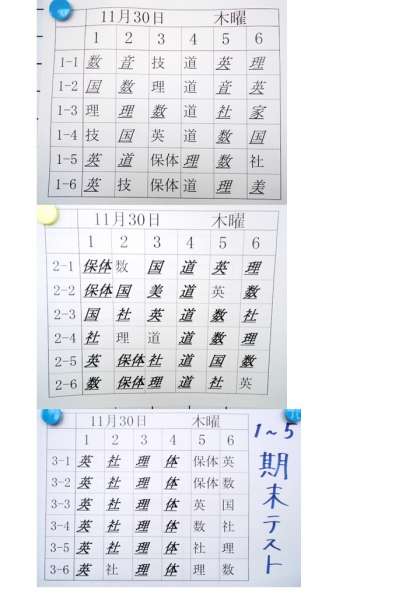 11月30日 木曜
1 2 3 4 5 6
1-1 数 音 技 道 英 理
1-2 国 数 理 道 音 英
1-3 理 理 数 道 社 家
1-4 技 国 英 道 数 国
1-5 英 道 保体 理 数 社
1-6 英 技 保体 道 理 美
11月30日 木曜
1 2 3 4 5 6
2-1 保体 数 国 道 英 理
2-2 保体 国 美 道 英 数
2-3 国 社 英 道 数 社
2-4 社 理 道 道 数 理
2-5 英 保体 社 道 国 数
2-6 数 保体 理 道 社 英
11月30日 木曜
1 2 3 4 5 6
3-1 英 社 理 体 保体 英
3-2 英 社 理 体 保体 数
3-3 英 社 理 体 英 国
3-4 英 社 理 体 数 社
3-5 英 社 理 体 社 理
3-6 英 社 理 体 理 数
1~5
期末テスト